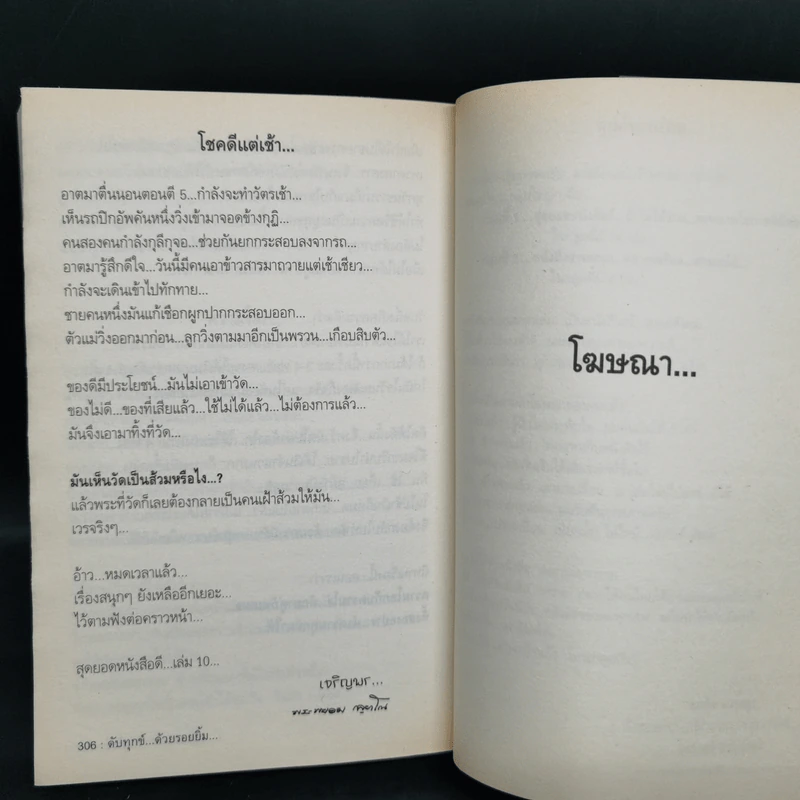 โชคดีแต่เช้า...
อาตมาตื่นนอนตอนตี 5...กำลังจะทำวัตรเช้า...
เห็นรถปิกอัพคันหนึ่งวิ่งเข้ามาจอดข้างกุฏิ...
คนสองคนกำลังกุลีกุจอ...ช่วยกันยกกระสอบลงจากรถ...
อาตมารู้สึกดีใจ...วันนี้มีคนเอาข้าวสารมาถวายแต่เช้าเชียว...
กำลังจะเดินเข้าไปทักทาย...
ชายคนหนึ่งมันแก้เชือกผูกปากกระสอบออก...
ตัวแม่วิ่งออกมาก่อน...ลูกวิ่งตามมาอีกเป็นพรวน...เกือบสิบตัว...
ของดีมีประโยชน์...มันไม่เอาเข้าวัด...
ของไม่ดี...ของที่เสียแล้ว...ใช้ไม่ได้แล้ว...ไม่ต้องการแล้ว...
มันจึงเอามาทิ้งที่วัด...
มันเห็นวัดเป็นส้วมหรือไง...?
แล้วพระที่วัดก็เลยต้องกลายเป็นคนเฝ้าส้วมให้มัน...
เวรจริงๆ...
อ้าว...หมดเวลาแล้ว...
เรื่องสนุกๆ ยังเหลืออีกเยอะ...
ไว้ตามฟังต่อคราวหน้า...
สุดยอดหนังสือดี...เล่ม 10...
เจริญพร...
พระพยอม กลฺยาโณ
306 : ดับทุกข์...ด้วยรอยยิ้ม...
โฆษณา...